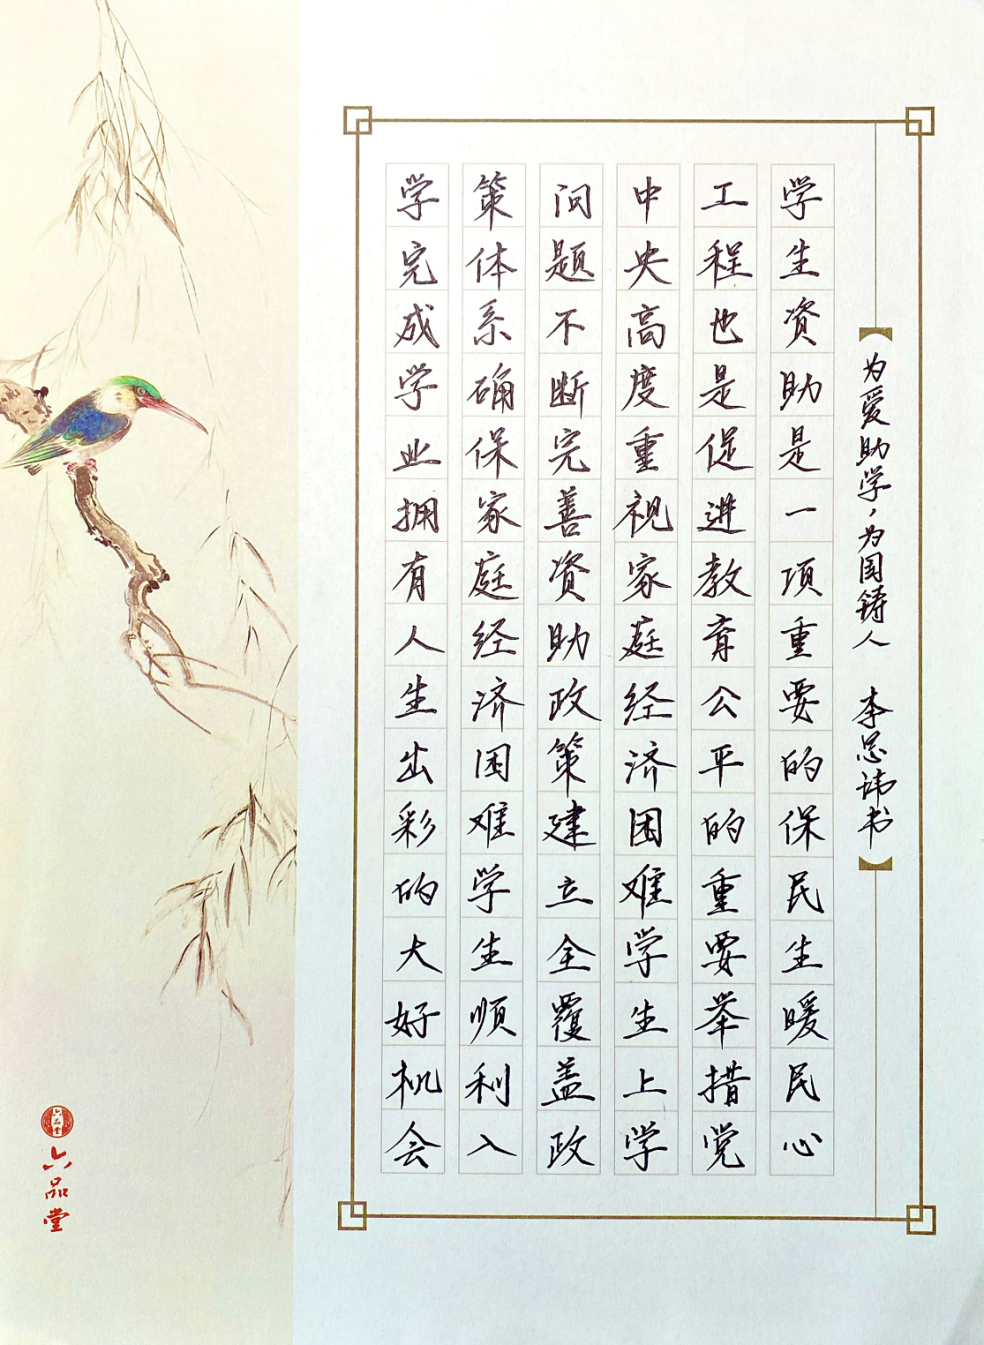 为爱助学，为国铸人 李思讳书
学生资助是一项重要的保民生暖民心
工程也是促进教育公平的重要举措党
中央高度重视家庭经济困难学生上学
问题不断完善资助政策建立全覆盖政
策体系确保家庭经济困难学生顺利入
学完成学业拥有人生出彩的大好机会
六品堂
六品堂